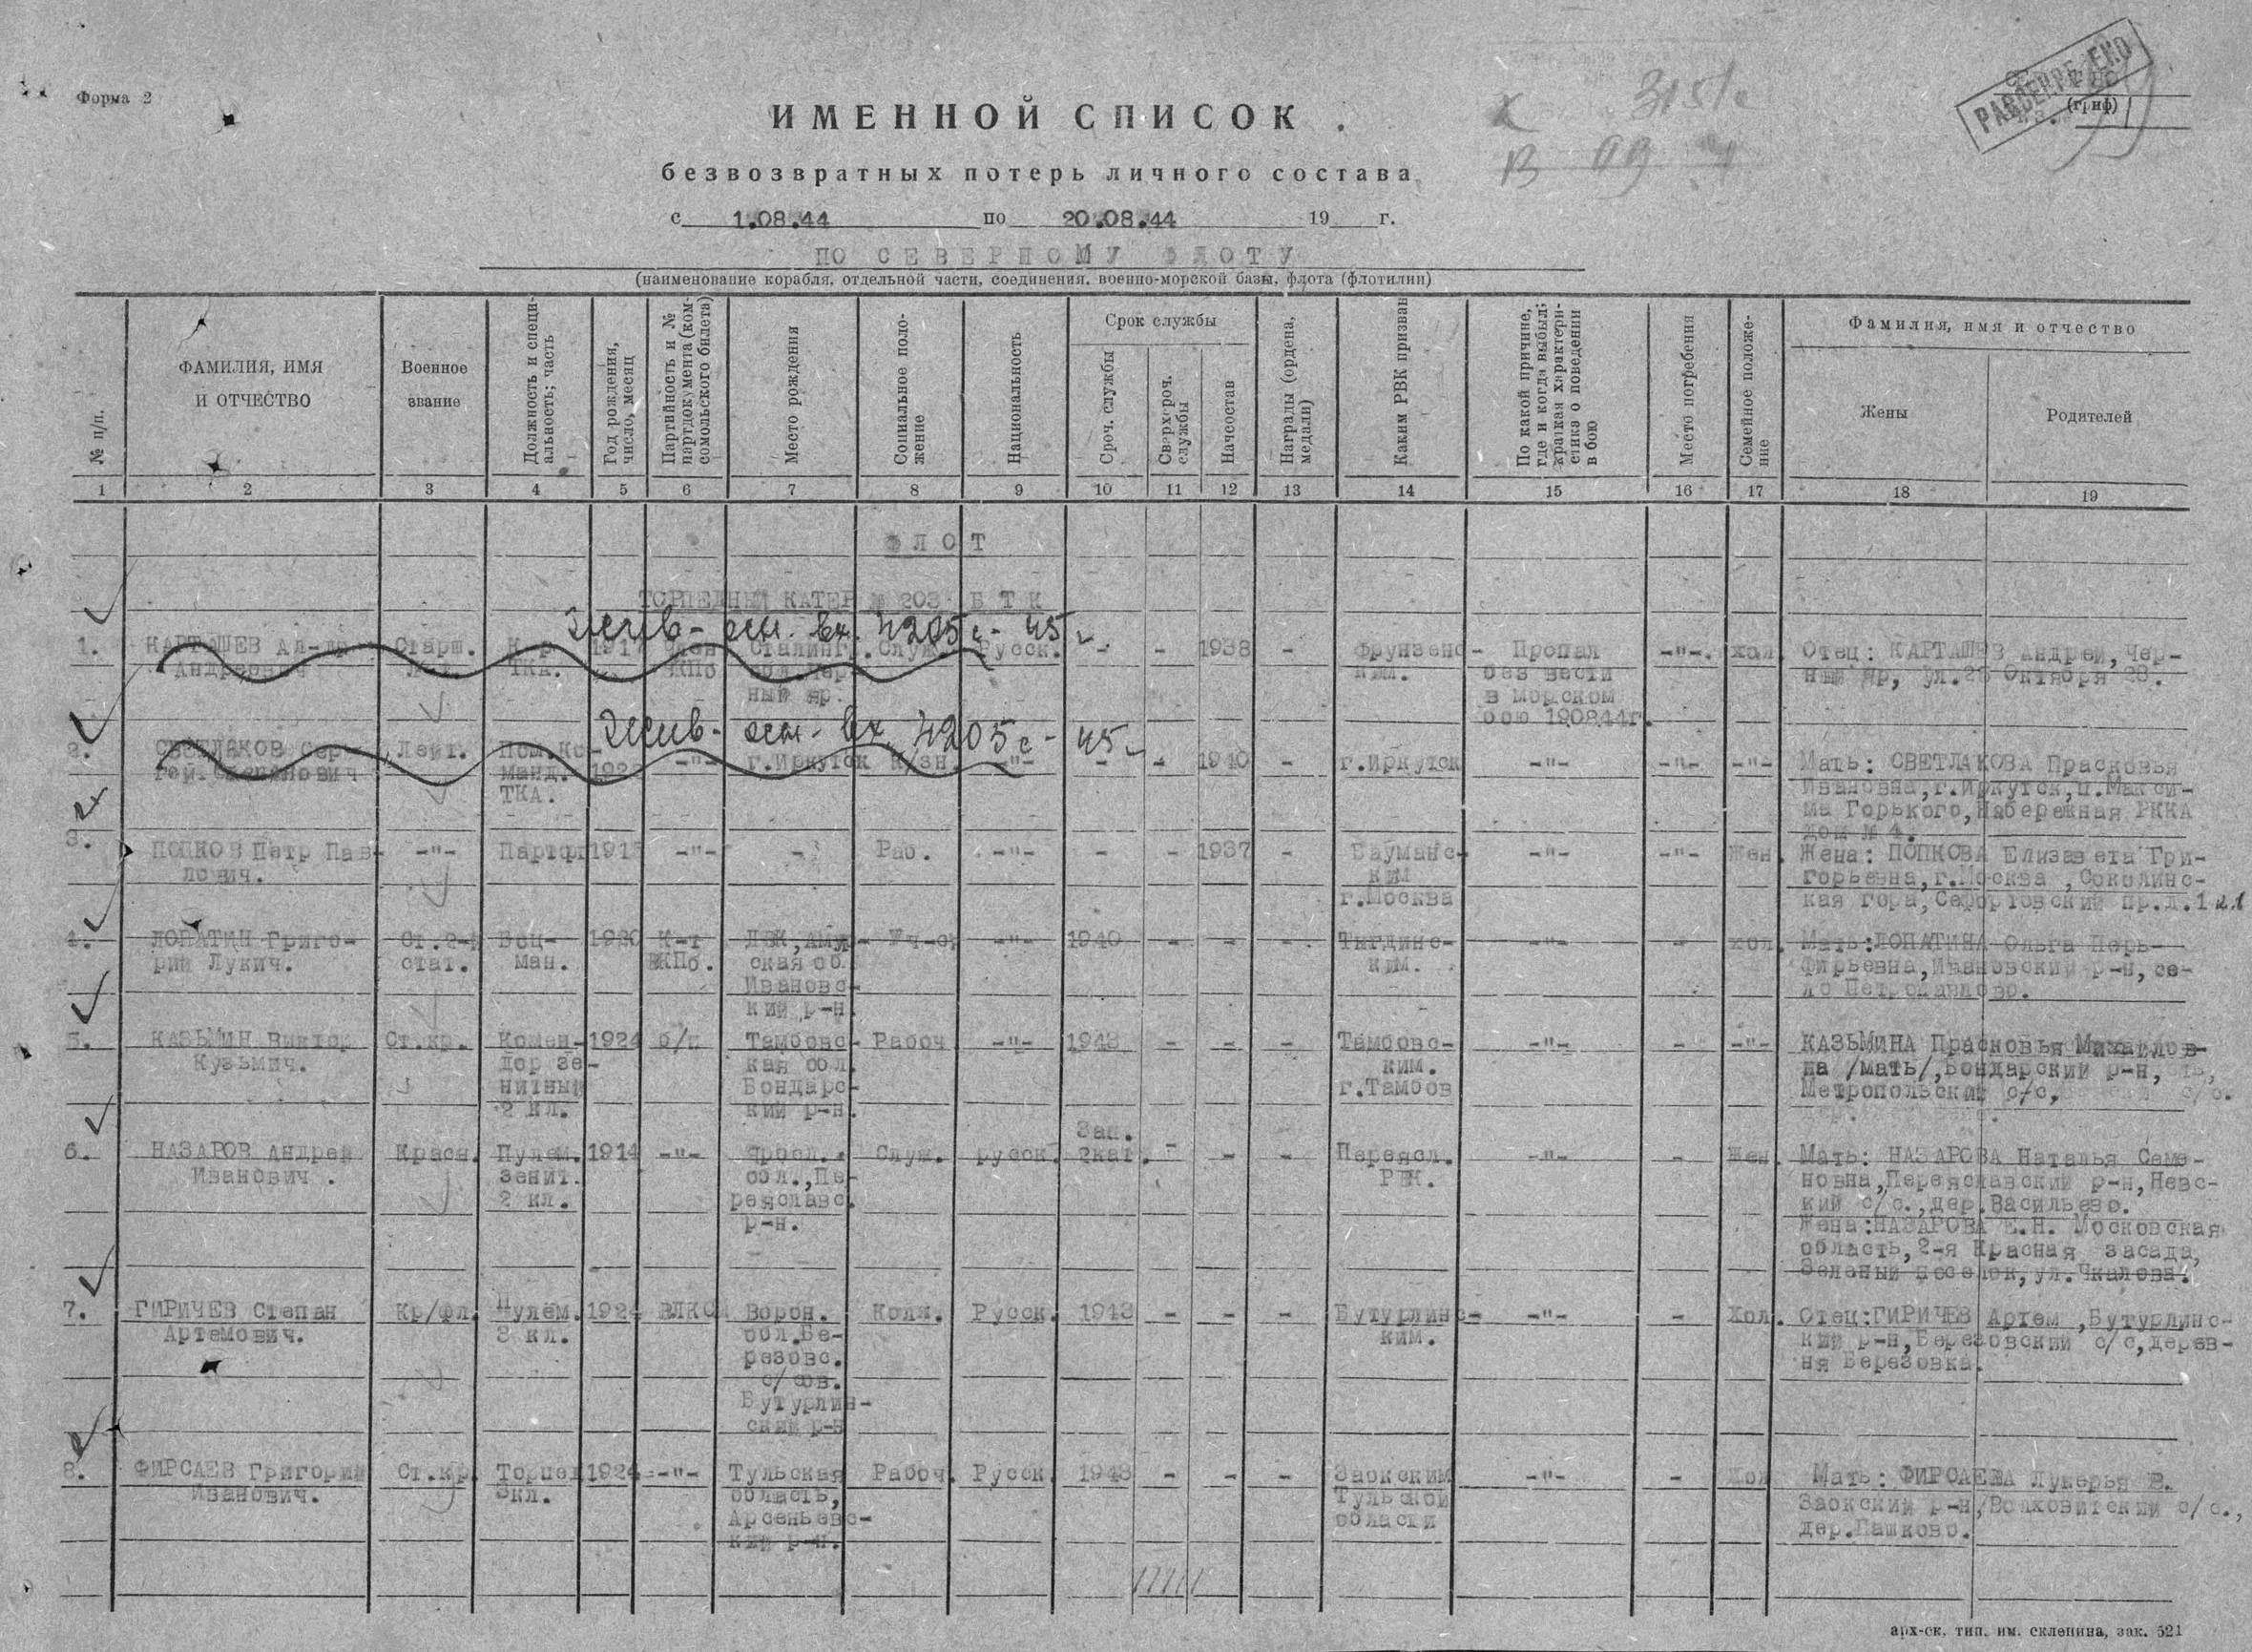 Форма 2
РАССЕКРЕЧЕНО
(гриф)
ИМЕННОЙ СПИСОК
безвозвратных потерь личного состава
с 1.08.44 по 20.08.44 19 г.
ПО СЕВЕРНОМУ ФЛОТУ
(наименование корабля, отдельной части, соединения, военно-морской базы, флота (флотилии)
№ п/п.
ФАМИЛИЯ, ИМЯ
И ОТЧЕСТВО
Военное
звание
Должность и специ-
альность; часть
Год рождения,
число, месяц
Партийность и №
партдокумента (ком-
сомольского билета)
Место рождения
Социальное поло-
жение
Национальность
Срок службы
Сроч. службы
Сверхсроч.
службы
Начсостав
Награды (ордена,
медали)
Каким РВК призван
По какой причине,
где и когда выбыл;
краткая характери-
стика о поведении
в бою
Место погребения
Семейное положе-
ние
Фамилия, имя и отчество
Жены
Родителей
1 2 3 4 5 6 7 8 9 10 11 12 13 14 15 16 17 18 19
ФЛОТ
ТОРПЕДНЫЙ КАТЕР № 203 БТК
Жив - осн. вх. 4205с - 45
1. КАРТАШЕВ Ал-др
Андреевич
Старш.
К-р
ТКА.
1917
Член
ВКПб
Сталингр.
обл. Чер-
ный яр.
Служ.
Русск.
- - 1938 -
Фрунзенс-
ким.
Пропал
без вести
в морском
бою 190844г.
-"-.
хол.
Отец: КАРТАШЕВ Андрей, Чер-
ный яр, ул.26 Октября 28.
Жив - осн. вх. 4205с - 45
2. СВЕТЛАКОВ Сер-
гей Степанович
Лейт.
Пом.Ко-
манд.
ТКА.
-"-
г.Иркутск
-"-
- - 1940 -
г.Иркутск
-"- -"- -"-
Мать: СВЕТЛАКОВА Прасковья
Ивановна,г.Иркутск,п.Макси-
ма Горького,Набережная РККА
дом № 4.
3. ПОПКОВ Петр Пав-
лович.
-"-
Парторг
-"-
-
Раб.
-"-
- - 1937 -
Бауманс-
ким
г.Москва
-"- -"- Жен.
Жена: ПОПКОВА Елизавета Гри-
горьевна,г.Москва ,Соколинс-
кая гора,Сефортовский пр.д.1
4. ЛОПАТИН Григо-
рий Лукич.
стат.
Боц-
ман.
1920
К-т
ВКПб.
ДВК,Амур-
ская об.
Ивановс-
кий р-н.
-"-
1940 - - -
Тыгдинс-
ким.
-"- - хол.
Мать:ЛОПАТИНА Ольга Пор-
фирьевна,Ивановский р-н, се-
ло Петропавлово.
5. КАЗЬМИН Виктор
Кузьмич.
Ст.кр.
Комен-
дор зе-
нитный
2 кл.
1924
б/п
Тамбовс-
кая обл.
Бондарс-
кий р-н.
Рабоч
-"-
1943 - - -
Тамбовс-
ким.
г.Тамбов
-"- - -"-
КАЗЬМИНА Прасковья Михайлов-
на /мать/,Бондарский р-н,
Метропольский с/с,
6. НАЗАРОВ Андрей
Иванович.
Красн.
Пулем.
зенит.
2 кл.
1914
-"-
Яросл.
обл.,Пе-
реяславс.
р-н.
Служ.
русск.
Зап.
2кат.
- - -
Переясл.
РВК.
-"- - Жен.
Мать: НАЗАРОВА Наталья Семе-
новна,Переяславский р-н,Невс-
кий с/с.,дер.Васильево.
Жена:НАЗАРОВА Е.Н. Московская
область,2-я Красная засада,
Зеленый поселок,ул.Чкалова.
7. ГИРИЧЕВ Степан
Артемович.
Кр/фл.
Пулем.
3 кл.
1924
ВЛКСМ
Ворон.
обл.Бе-
резовс.
с/сов.
Бутурлин-
ский р-н
Колх.
Русск.
1943 - - -
Бутурлинс-
ким.
-"- - Хол.
Отец:ГИРИЧЕВ Артем ,Бутурлинс-
кий р-н,Березовский с/с,дерев-
ня Березовка.
8. ФИРСАЕВ Григорий
Иванович.
Ст.кр.
Торпед
3кл.
1924
-"-
Тульская
область,
Арсеньевс-
кий р-н.
Рабоч.
Русск.
1943 - - -
Заокским
Тульской
области
-"- - Хол
Мать: ФИРСАЕВА Лукерья В.
Заокский р-н, с/с.,
дер.Пашково.
арх-ск. тип. им. склепина, зак. 521